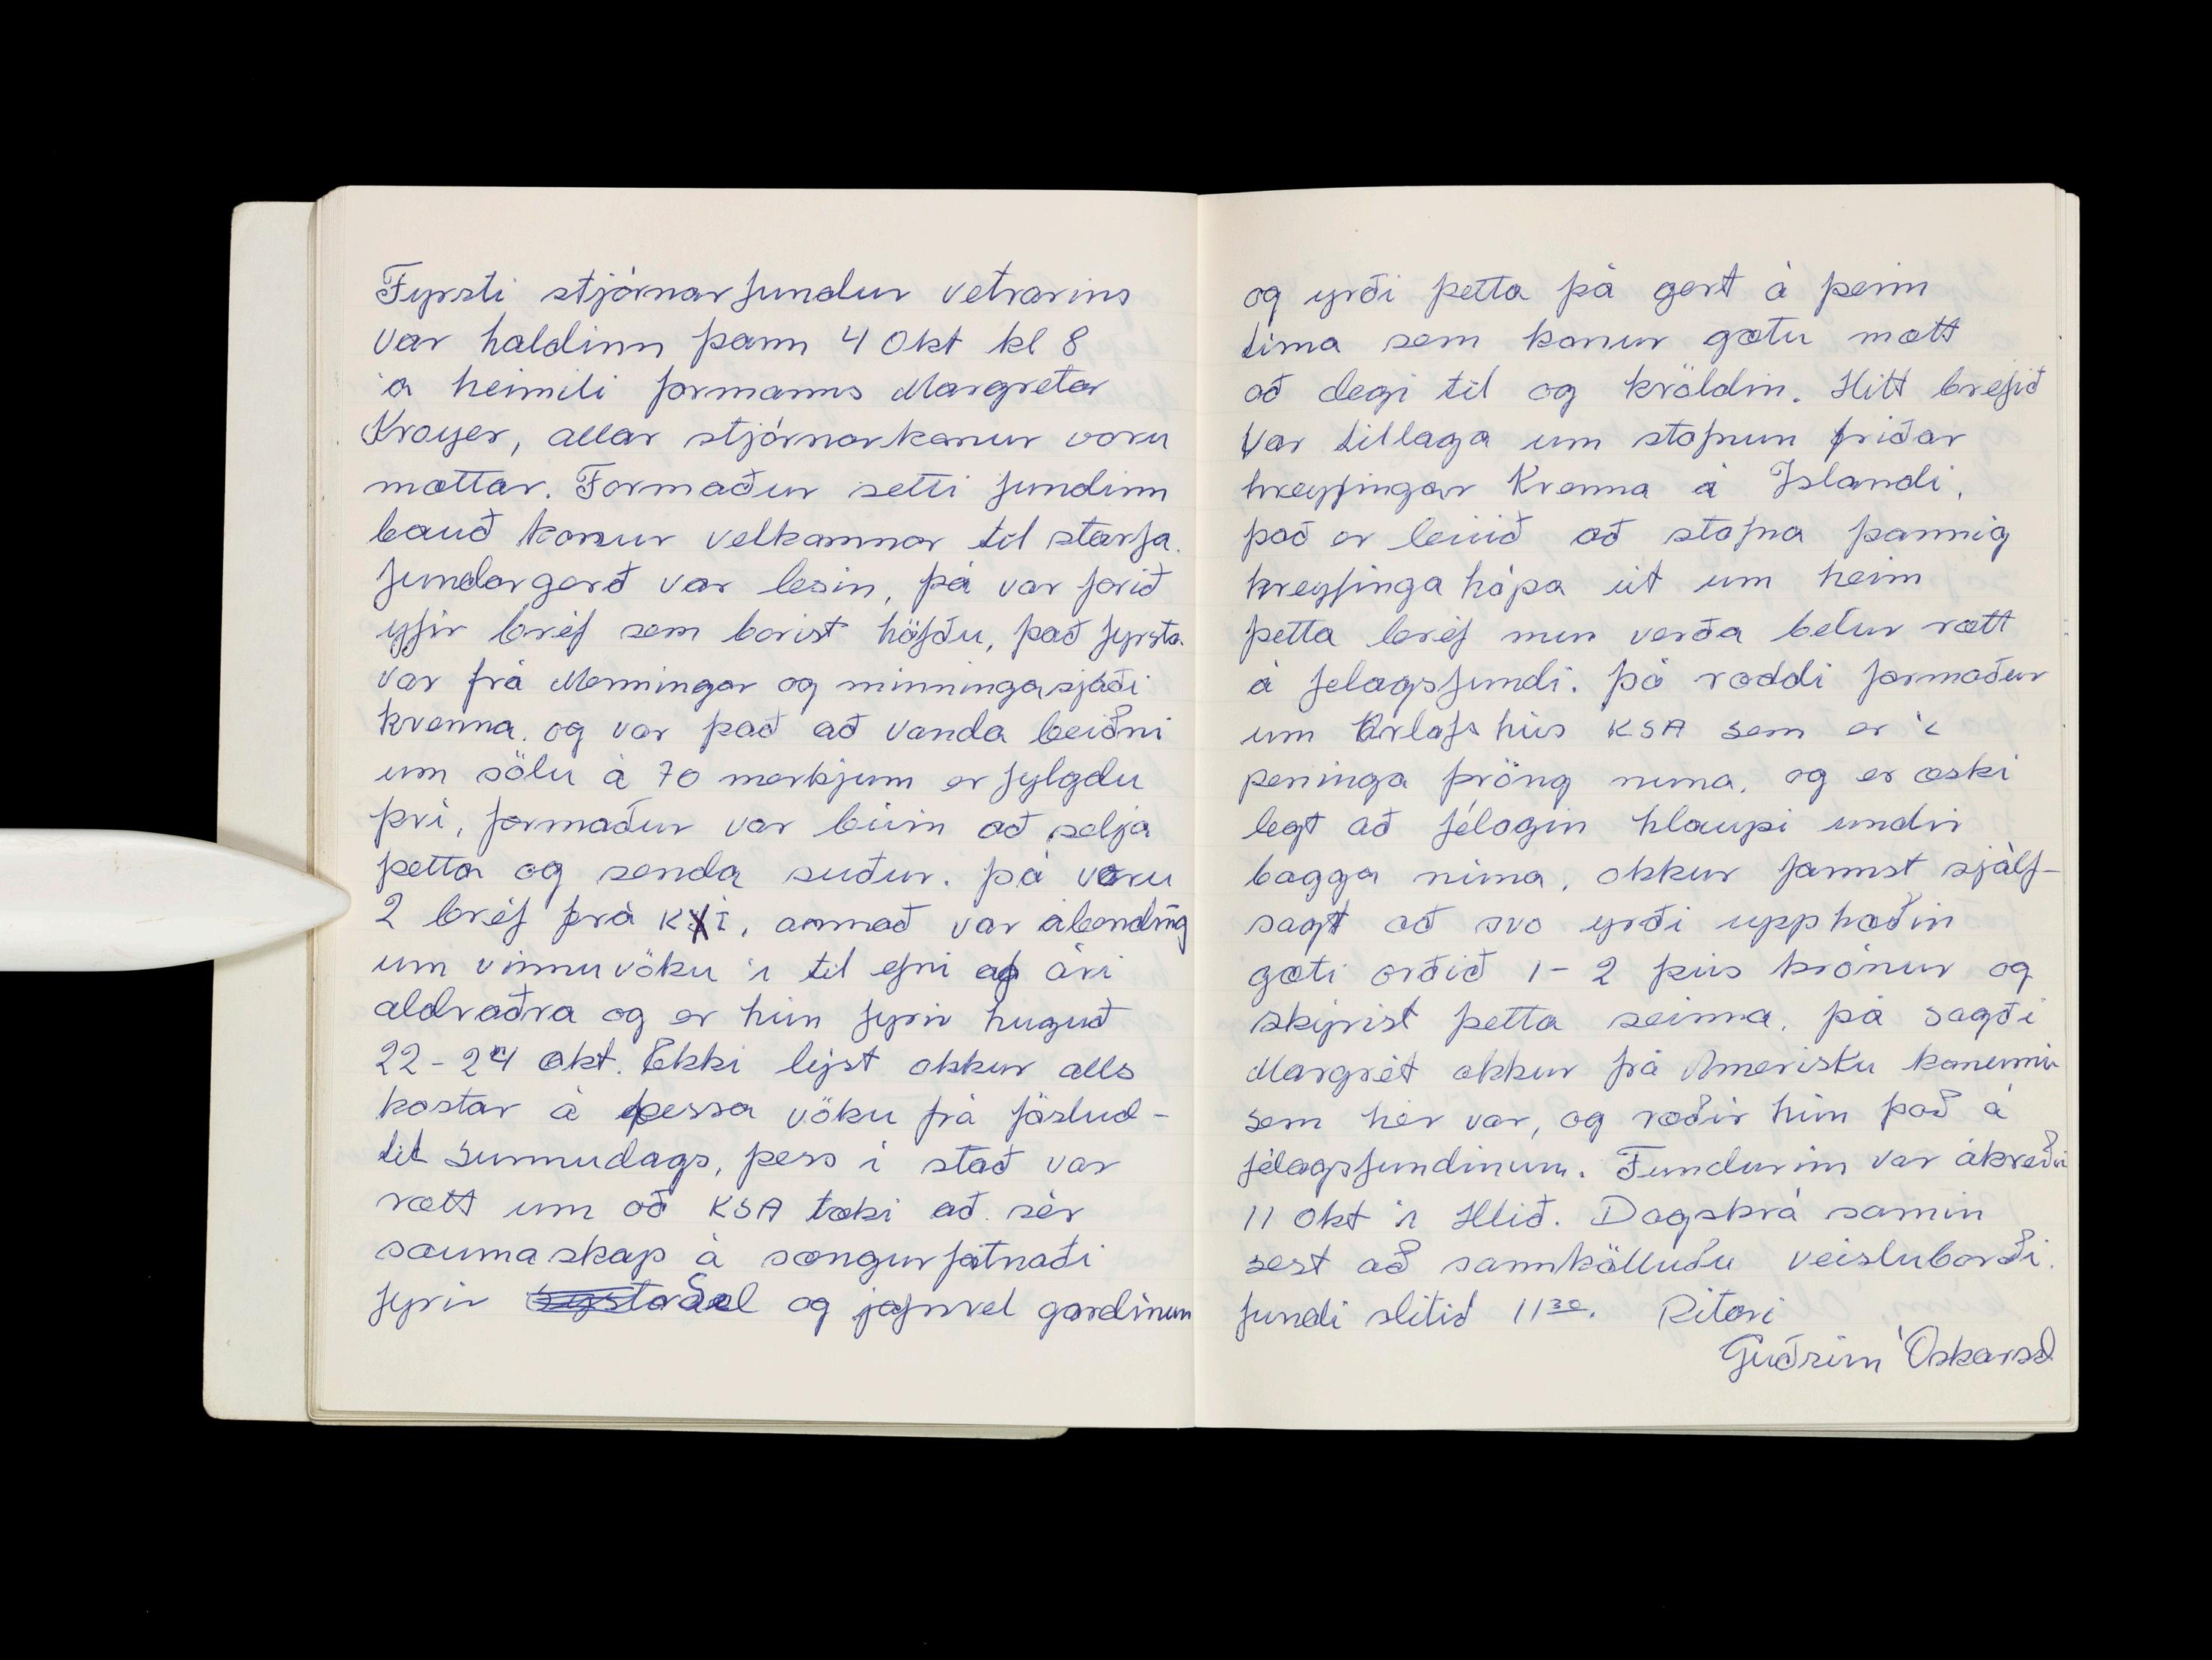 Fyrsti stjórnarfundur vetrarins
var haldinn þann 4 Okt kl 8
á heimili formanns Margretar
Kroyer, allar stjórnarkonur voru
mættar. Formaður setti fundinn
bauð konur velkomnar til starfa.
fundargerð var lesin, þá var farið
yfir bréf sem borist höfðu, það fyrsta
var frá Menningar og minningasjóði
kvenna. og var það að vanda beiðni
um sölu á 70 merkjum er fylgdu
því, formaður var búin að selja
þetta og senda suður. þá voru
2 bréf frá KÍ, annað var ábending
um vinnuvöku í til efni af ári
aldraðra og er hún fyrir huguð
22-24 okt. Ekki lýst okkur alls
kostar á þessa vöku frá föslud-
til sunnudags, þess í stað var
rætt um að KSA tæki að sér
saumaskap á sængurfatnaði
fyrir Sel og jafnvel gardínum
og yrði þetta þá gert á þeim
tíma sem konur gætu mætt
að degi til og kvöldin. Hitt brefið
var tillaga um stofnun friðar
hreyfingar Kvenna á Islandi,
það er búið að stofna þannig
hreyfinga hópa út um heim
þetta bréf mun verða betur rætt
á felagsfundi. þá ræddi formaður
um Orlofs hús KSA sem er í
peninga þröng núna, og er æski
legt að félögin hlaupi undir
bagga núna, okkur fannst sjálf-
sagt að svo yrði upphæðin
gæti orðið 1-2 þús krónur og
skýrist þetta seinna, þá sagði
Margrét okkur frá Amerísku konunni
sem hér var, og ræðir hún það á
félagsfundinum. Fundurinn var ákveðin
11 okt í Hlíð. Dagskrá samin
sest að samkölluðu veisluborði.
fundi slitið 11 30. Ritari
Guðrún Óskarsd